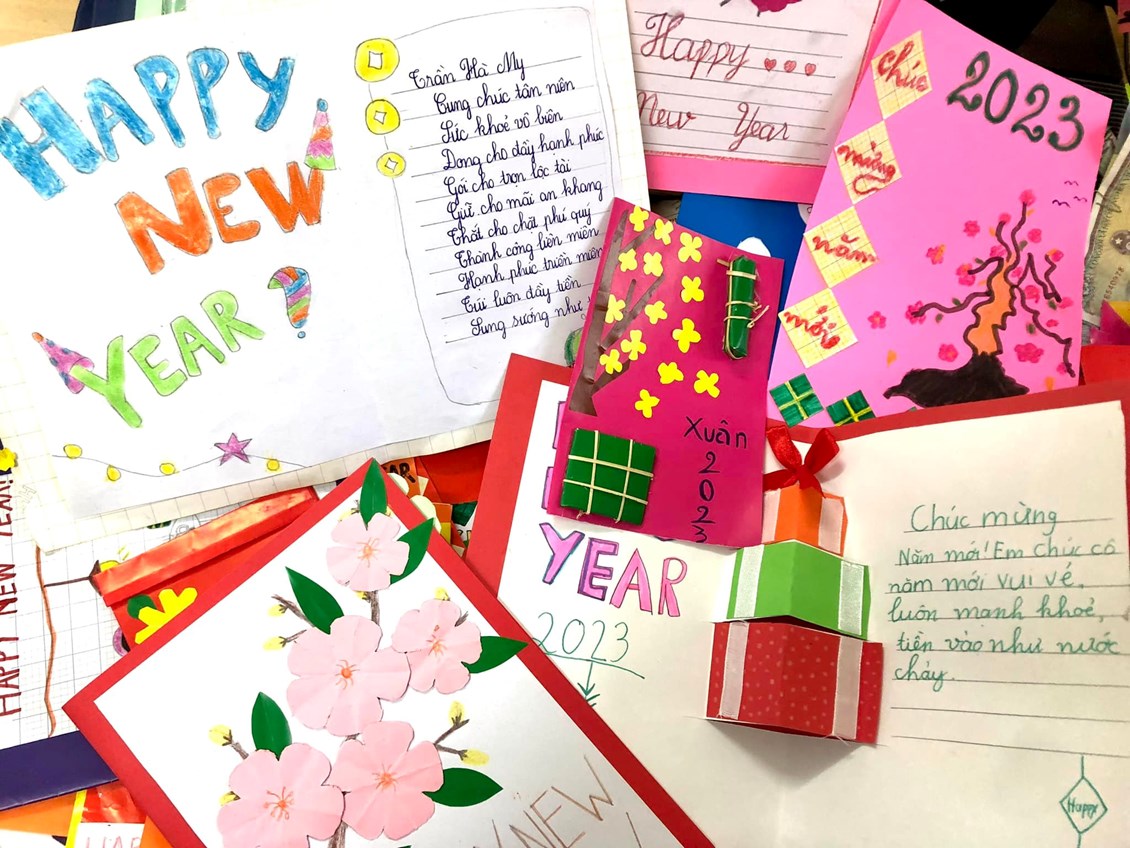 HAPPY
NEW
YEAR
Trần Hà My
Cung chúc tân niên
Sức khoẻ vô biên
Dong cho đầy hạnh phúc
Gói cho trọn lộc tài
Giữ cho mãi an khang
Thắt cho chặt phú quý
Thành công liên miên
Hạnh phúc triền miên
Túi luôn đầy tiền
Sung sướng như
Happy
New Year
2023
chúc
mừng
năm
mới
Xuân
2
0
2
3
YEAR
2023
Chúc mừng
Năm mới! Em chúc cô
năm mới vui vẻ,
luôn mạnh khoẻ,
tiền vào như nước
chảy.
Happy
NEW
HAPPY NEW YEAR!